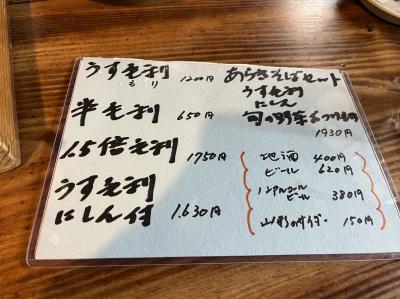 うす毛利 1200円
もり
半毛利 650円
1.5倍毛利 1750円
うす毛利
にしん付 1.630円
あらきそばセット
うす毛利
にしん
旬の野菜おつけもの
1930円
地酒 400円
ビール 620円
ノンアルコール
ビール 380円
山形のサイダー 150円